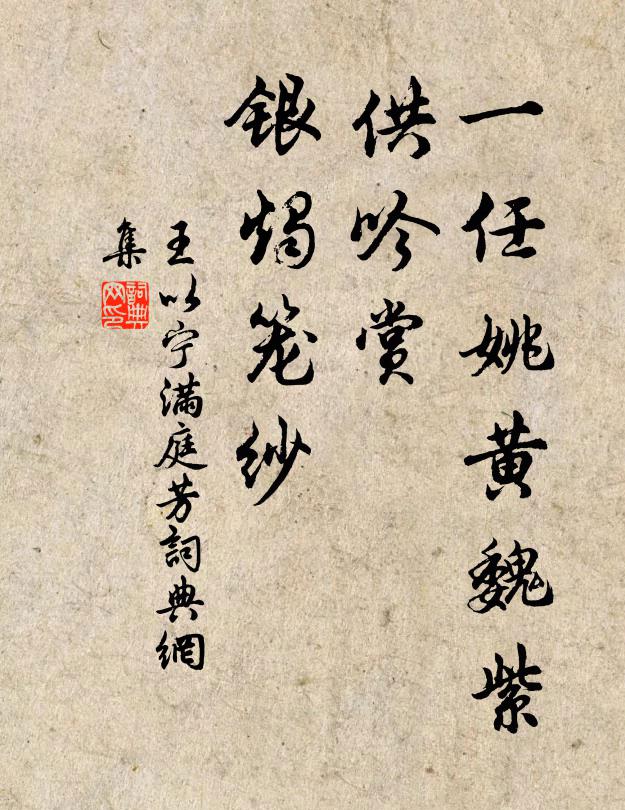 一任姚黄魏紫
供吟赏
银烛笼纱
王以宁满庭芳詞典網
集
詞典网印